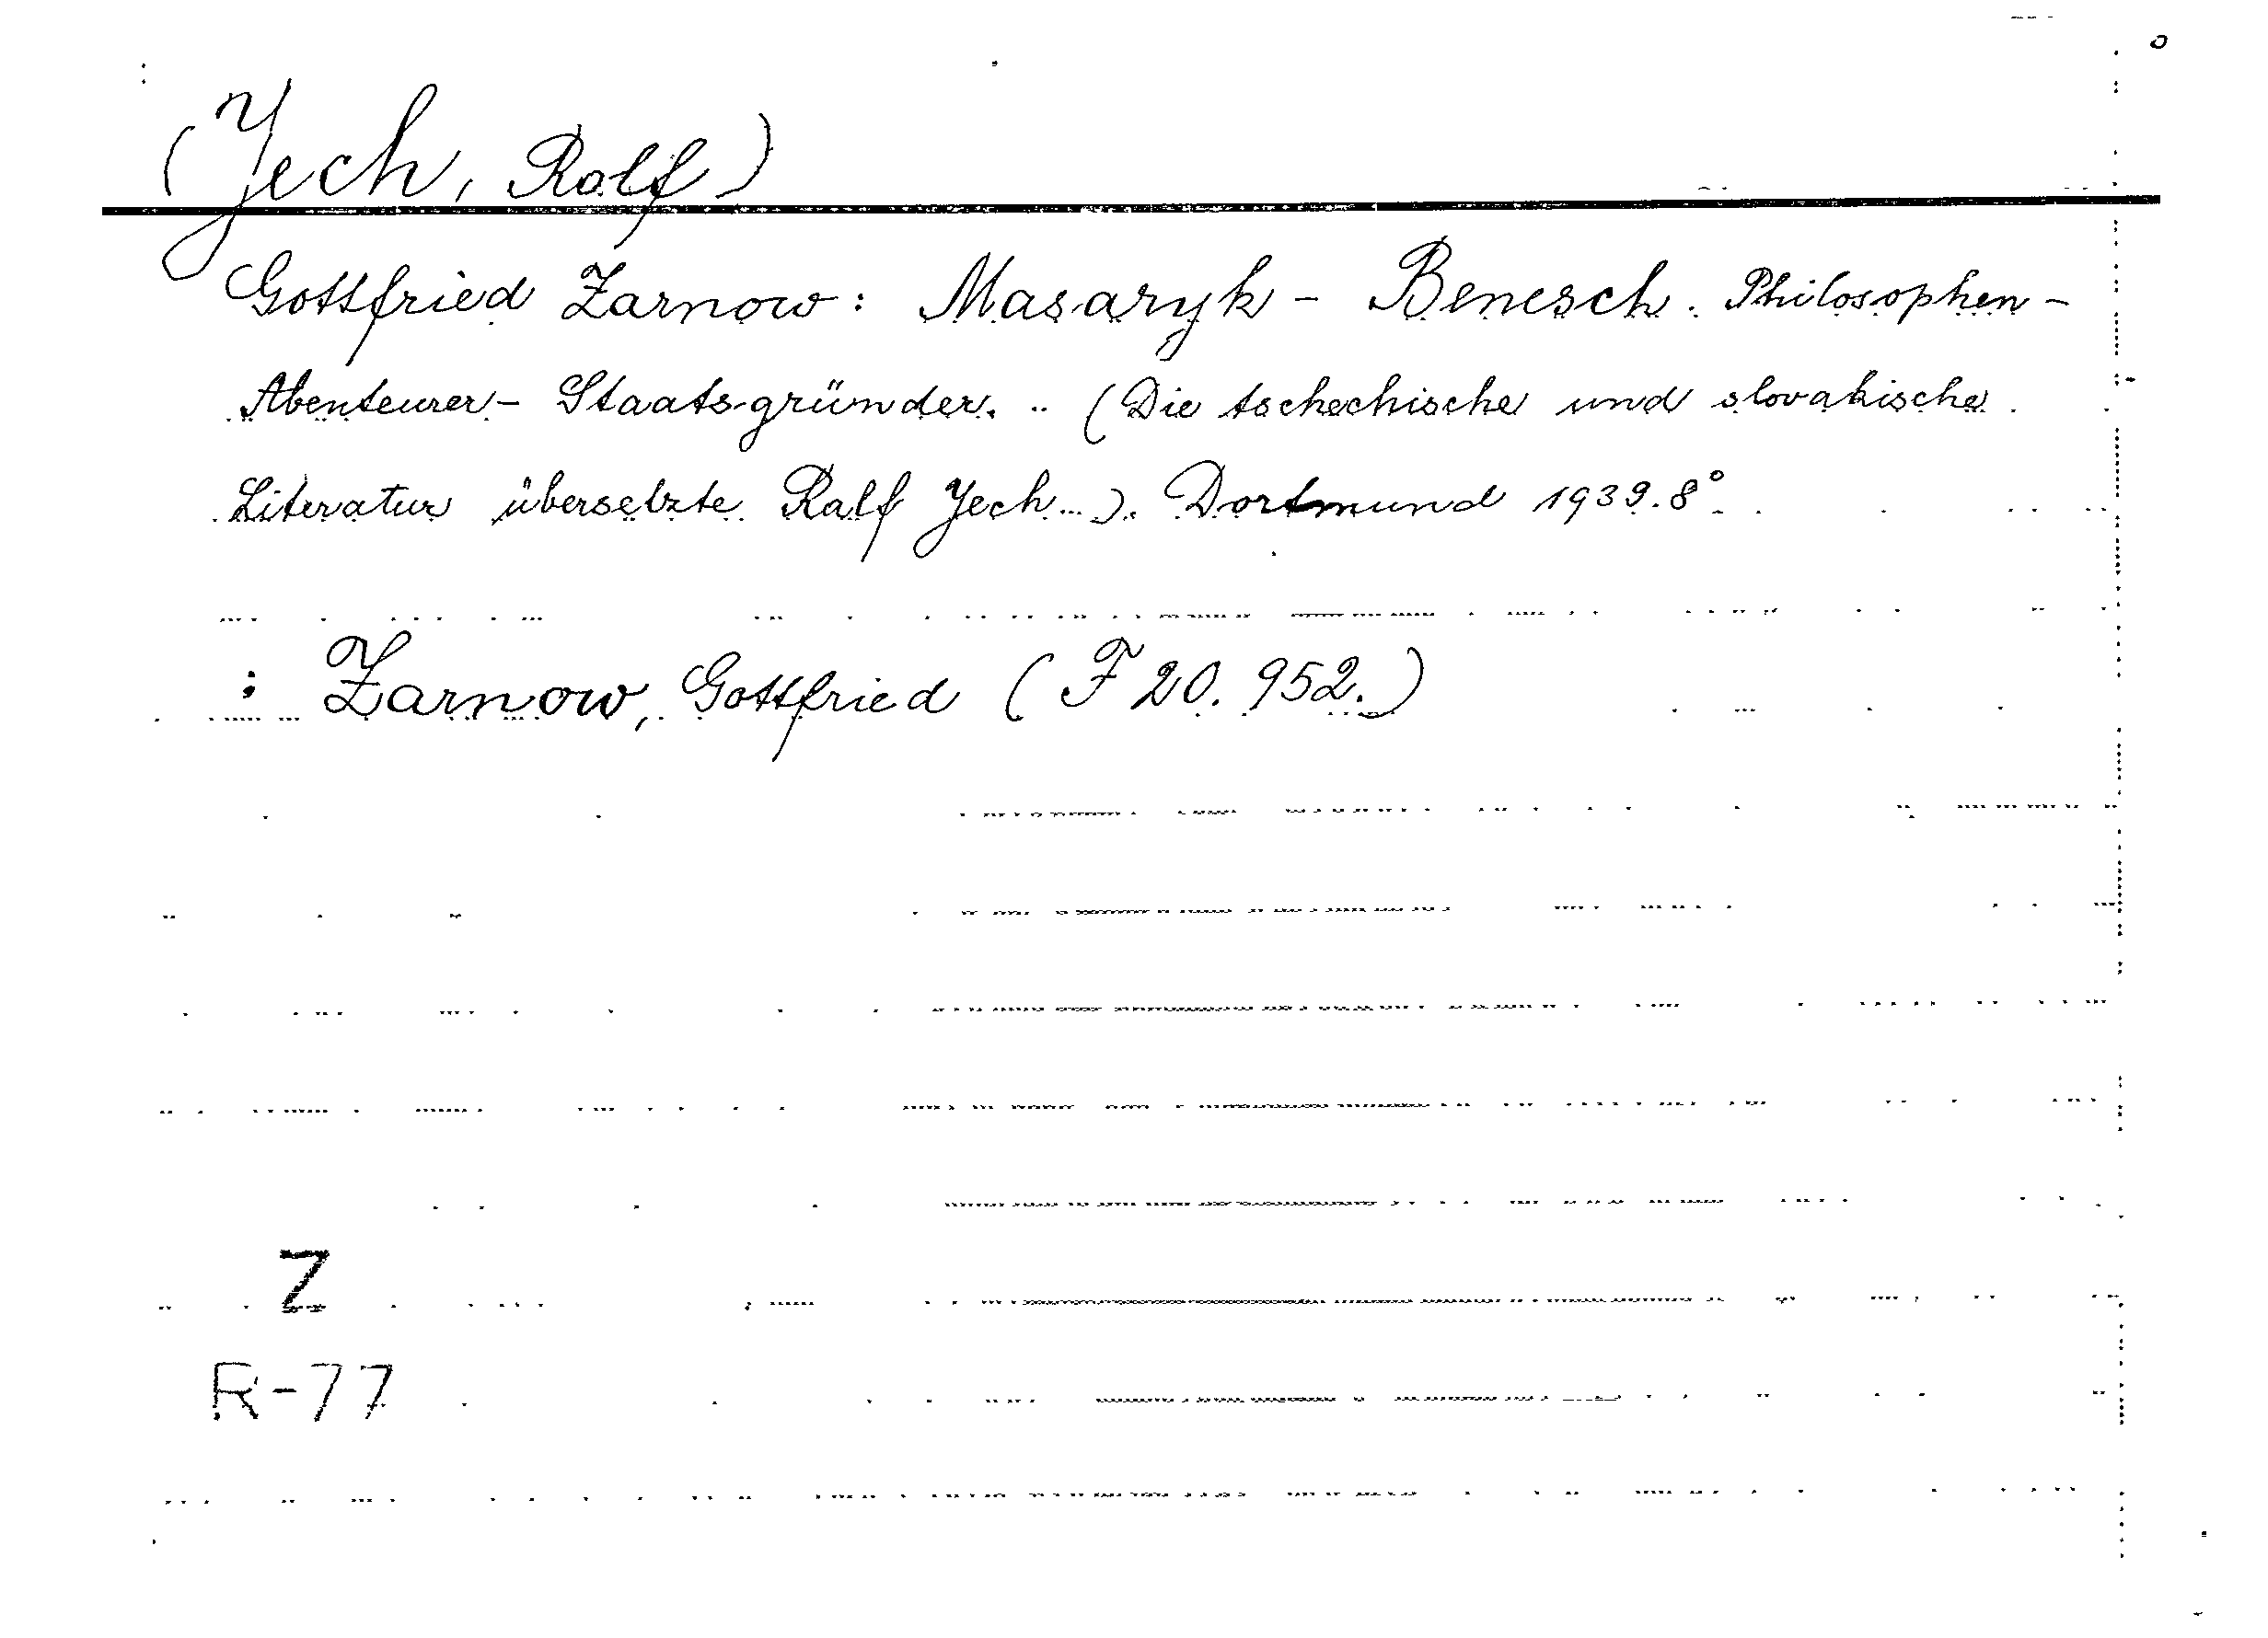 (Jech, Ralf)
Gottfried Zarnow: Masaryk - Benesch. Philosophen -
Abenteurer - Staatsgründer. .. (Die tschechische und slovakische
Literatur übersetzte Ralf Jech...). Dortmund 1939. 8°.
: Zarnow, Gottfried (F 20. 952.)
Z
R-77